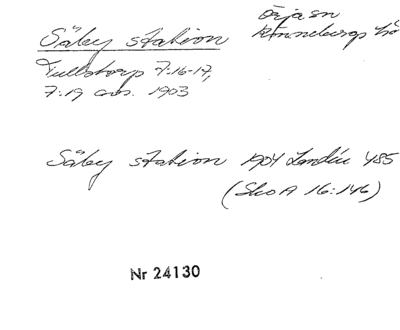 Säby station
Örja sn
Rönnebergs hd
Tullstorp 7:16-17,
7:19 avs. 1903
Säby station 1904 Landin 485
(Sko A 16:146)
Nr 24130